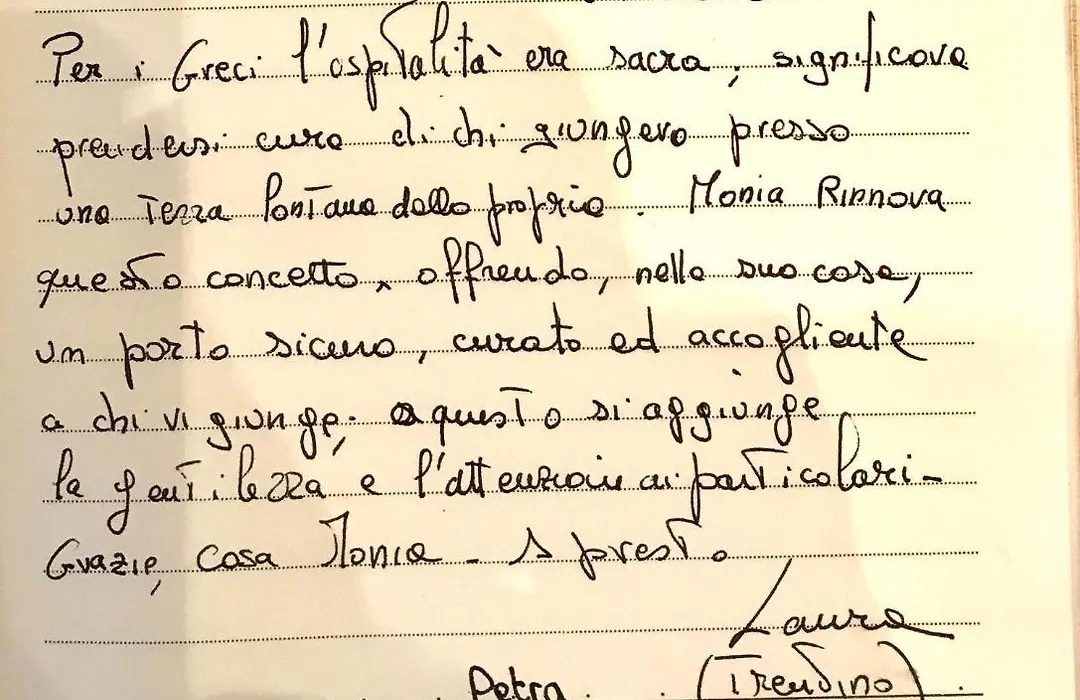 Per i Greci l'ospitalità era sacra, significava
prendersi cura di chi giungeva presso
una terra lontana dalla propria. Monia Rinnova
questo concetto, offrendo, nella sua casa,
un porto sicuro, curato ed accogliente
a chi vi giunge; a questo si aggiunge
la gentilezza e l'attenzione ai particolari-
Grazie, casa Monia - A presto
Laura
Petra. (Trentino)